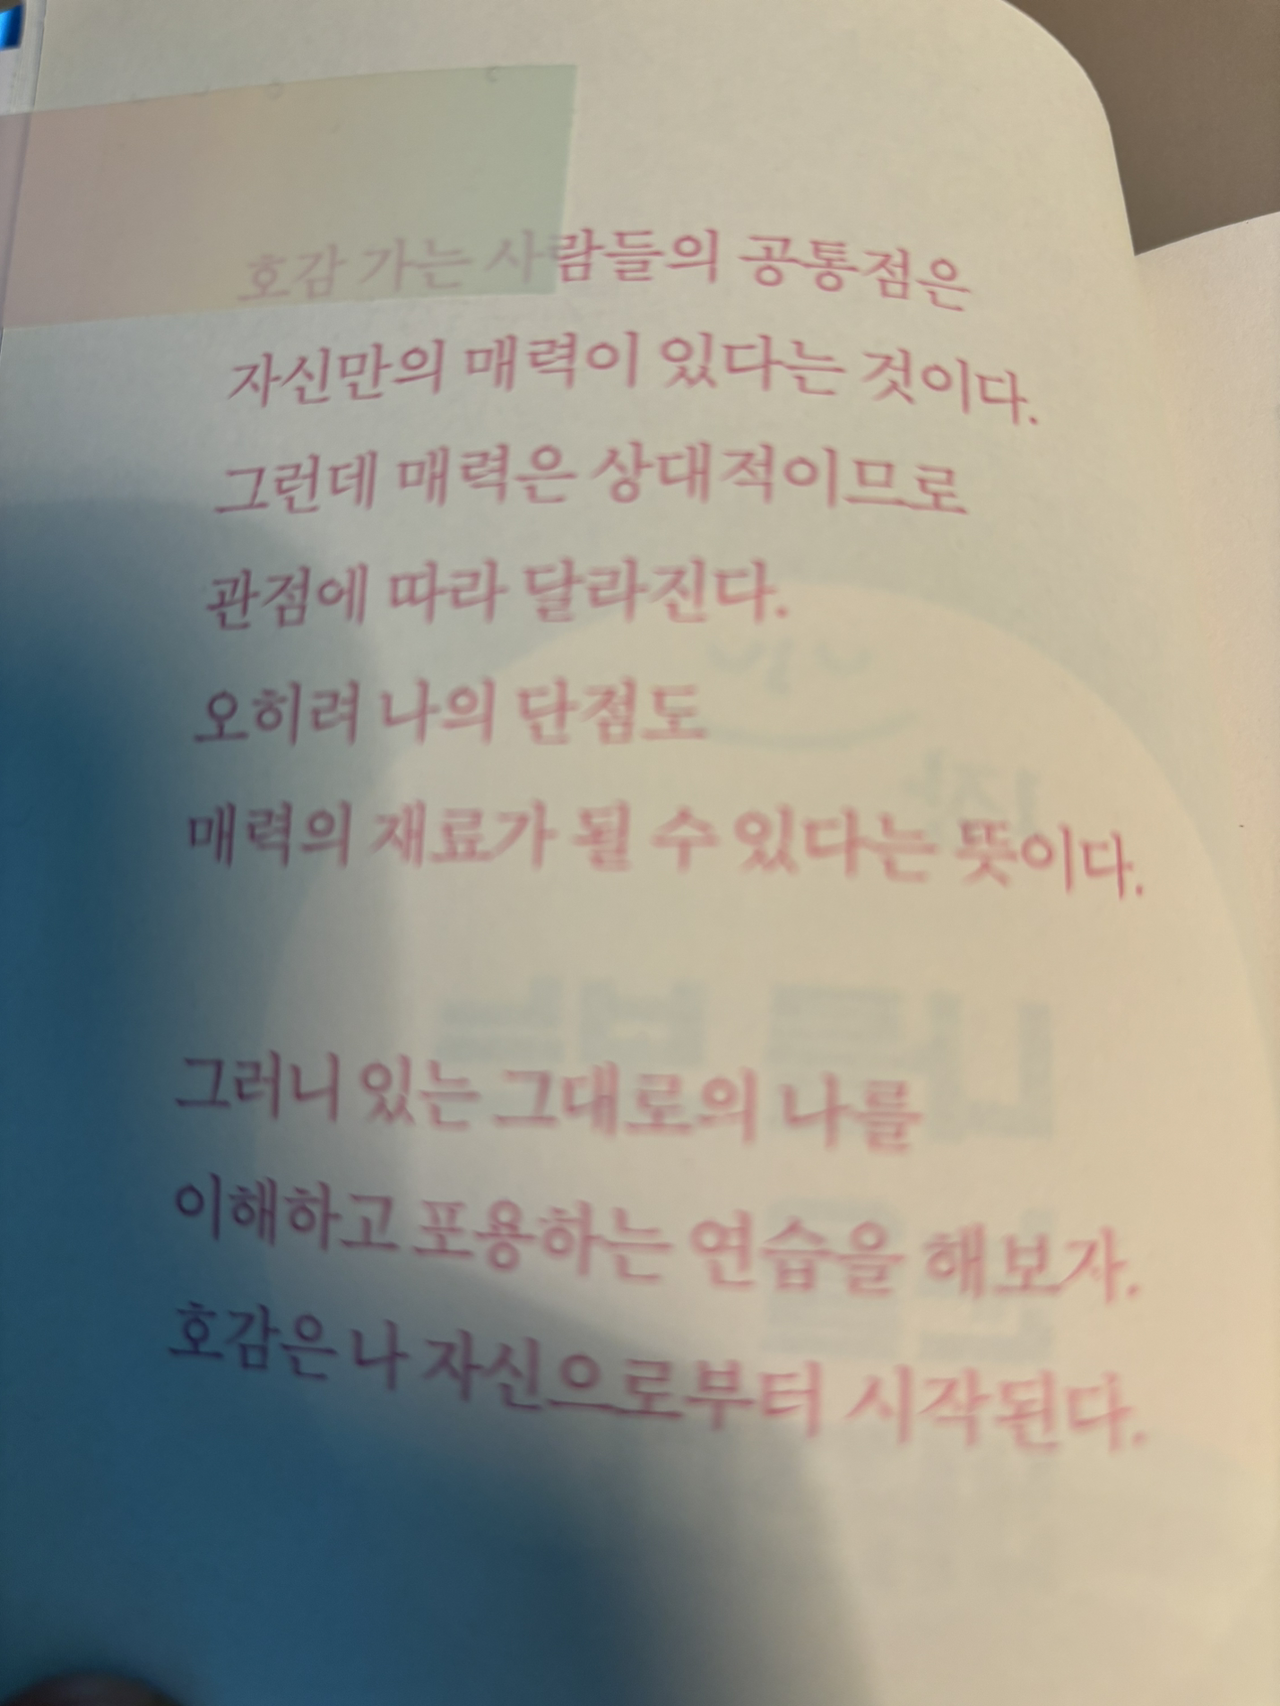 호감 가는 사람들의 공통점은
자신만의 매력이 있다는 것이다.
그런데 매력은 상대적이므로
관점에 따라 달라진다.
오히려 나의 단점도
매력의 재료가 될 수 있다는 뜻이다.
그러니 있는 그대로의 나를
이해하고 포용하는 연습을 해보자.
호감은 나 자신으로부터 시작된다.